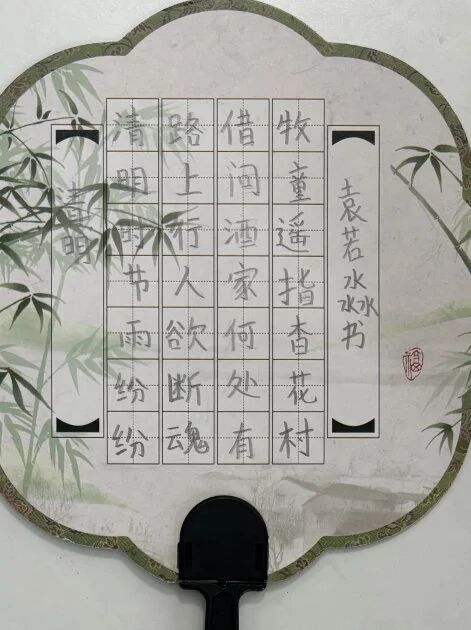 清明
清明时节雨纷纷
路上行人欲断魂
借问酒家何处有
牧童遥指杳花村
袁若淼书
福